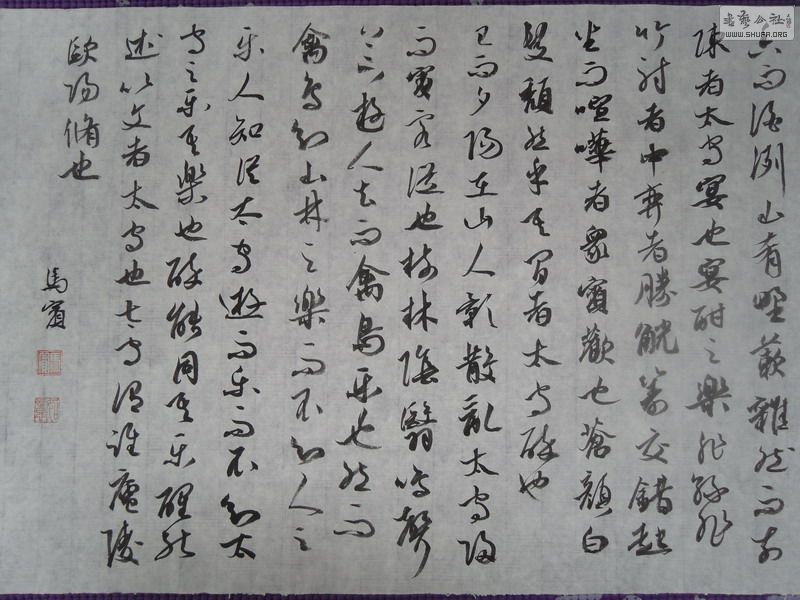 而酒洌山肴野蔌雜然而前
陳者太守宴也宴酣之樂非絲非
竹射者中弈者勝觥籌交錯起
坐而喧嘩者衆賓歡也蒼顏白
髮頹然乎其間者太守醉也
已而夕陽在山人影散亂太守歸
而賓客從也樹林陰翳鳴聲
上下遊人去而禽鳥樂也然而
禽鳥知山林之樂而不知人之
樂人知從太守遊而樂而不知太
守之樂其樂也醉能同其樂醒能
述以文者太守也太守謂誰廬陵
歐陽脩也
馬賓
书艺公社
WWW.SHUFA.ORG